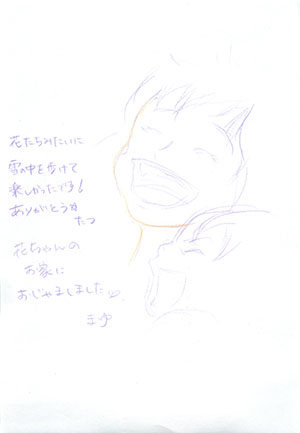 花たちみたいに
雪の中を歩けて
楽しかったです!
ありがとうね
たつ
花ちゃんの
お家に
おじゃましました
まゆ